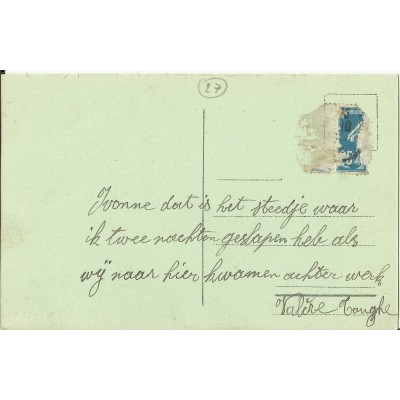 27
Yvonne dat is het steedje waar
ik twee nachten geslapen heb als
wij naar hier kwamen achter werk
Valère Tonghe